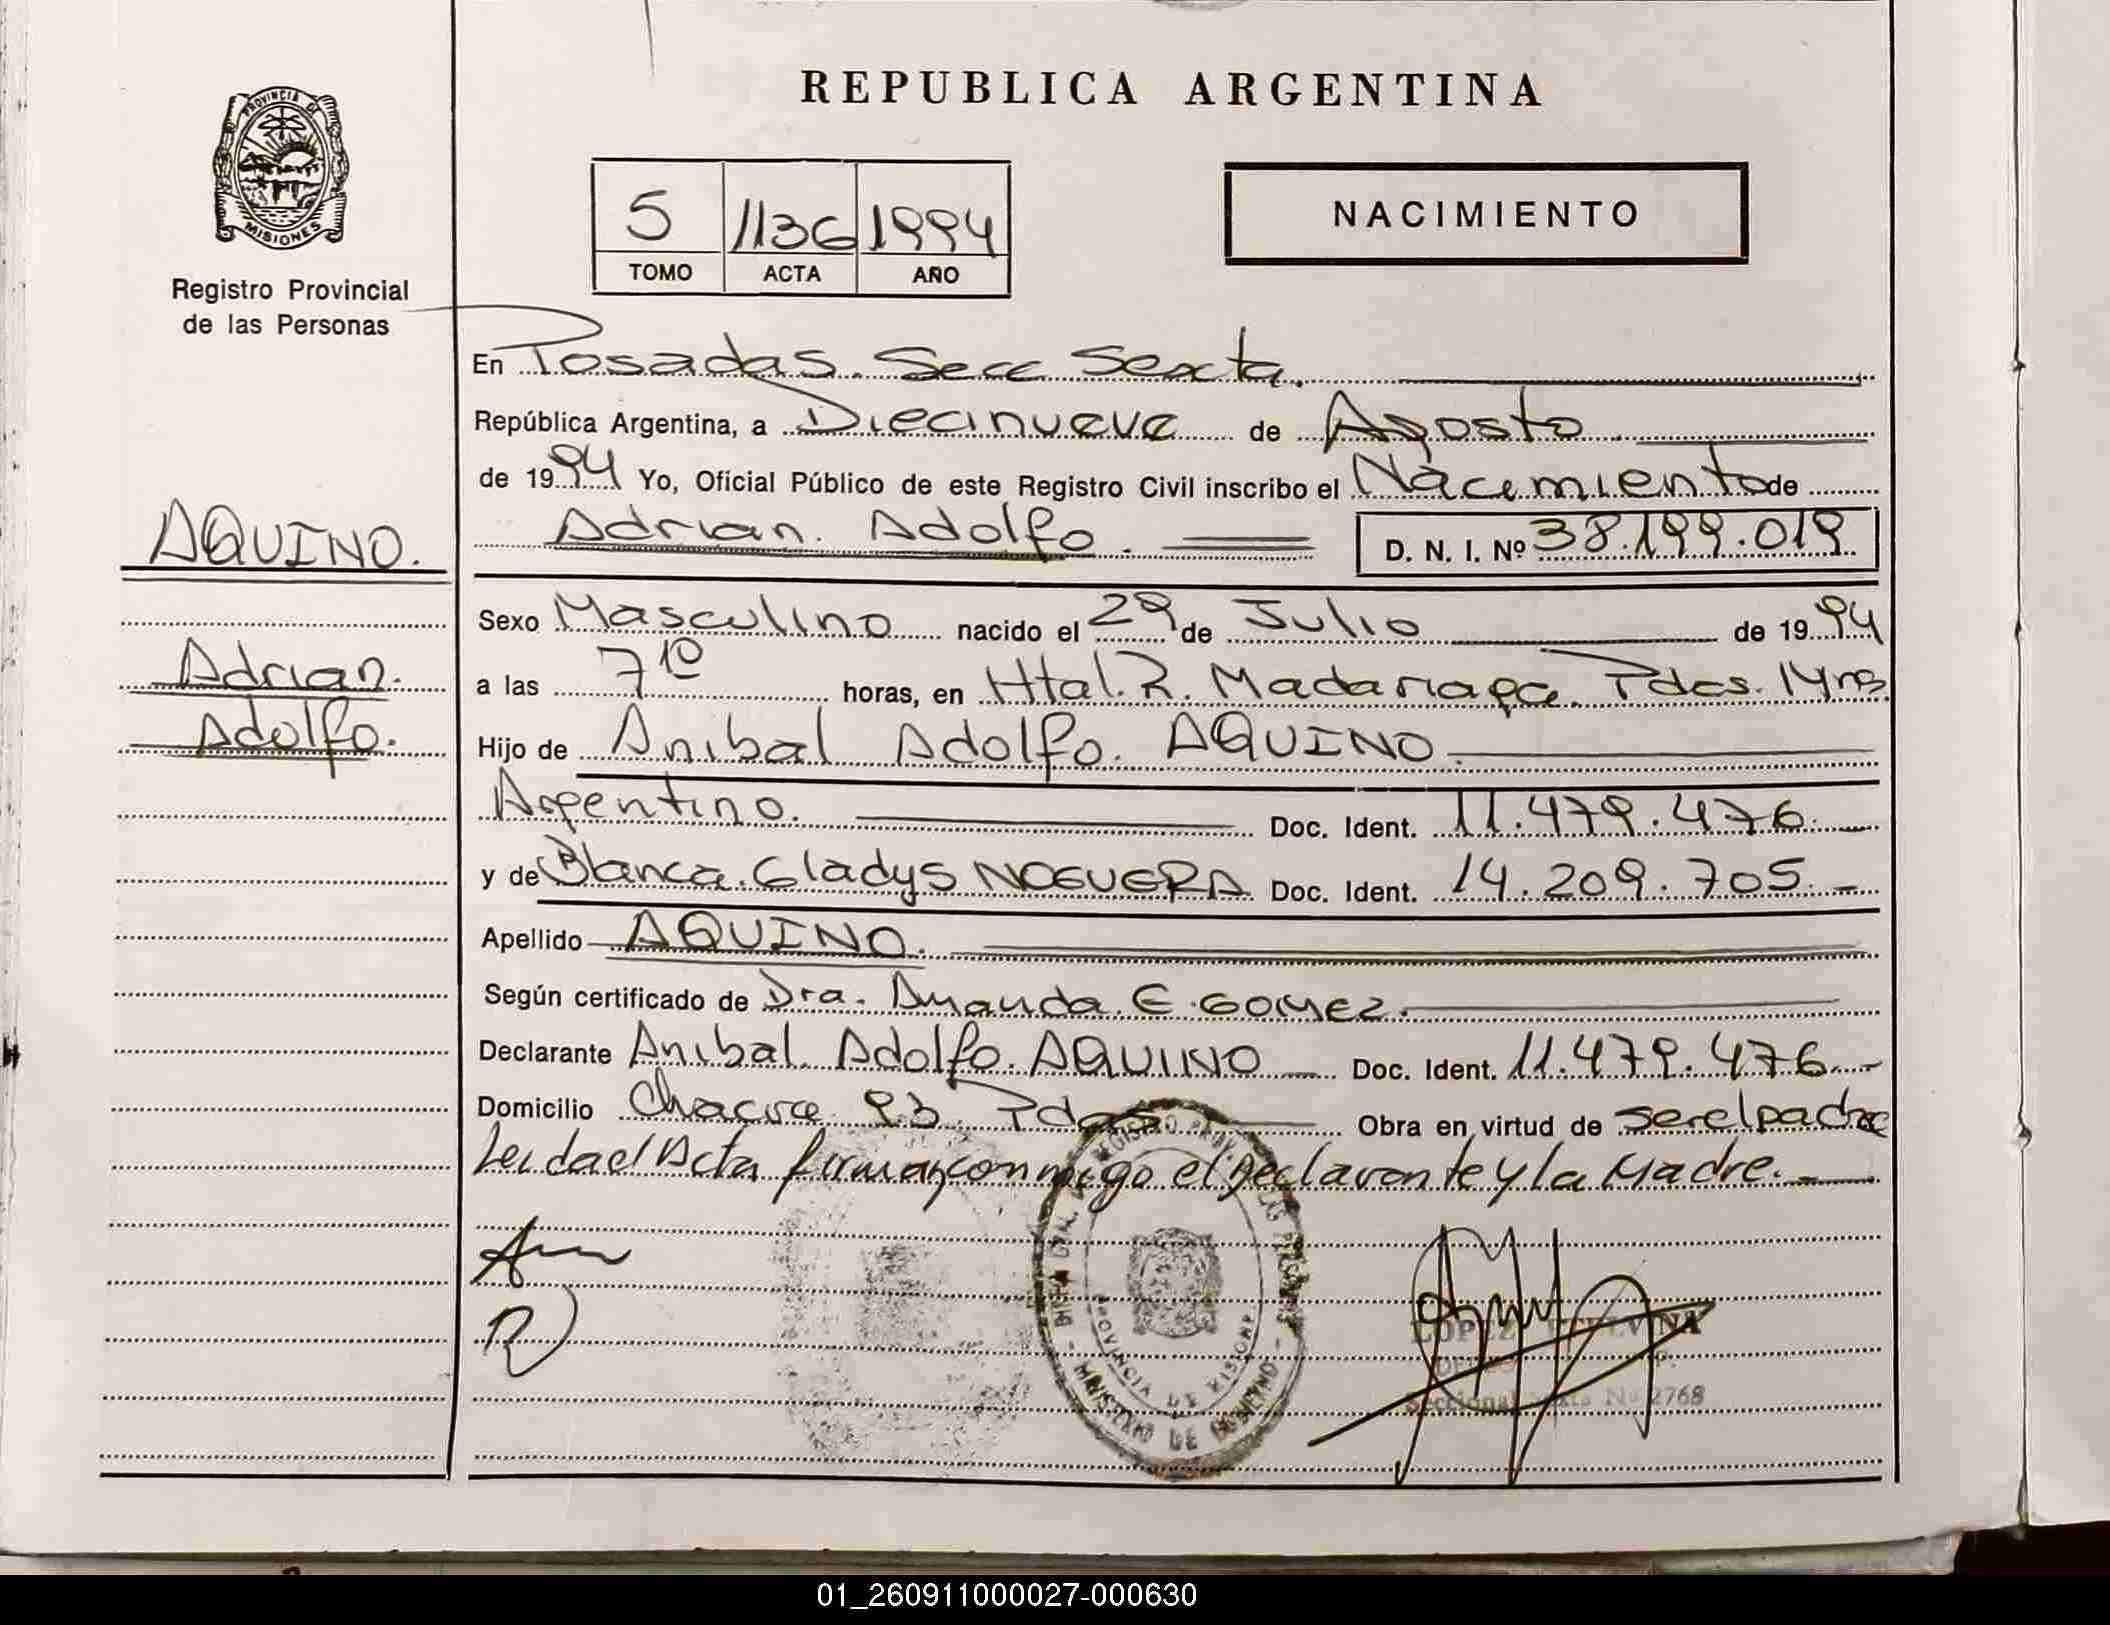 REPUBLICA ARGENTINA
PROVINCIA DE
MISIONES
Registro Provincial
de las Personas
5 1136 1994
TOMO ACTA AÑO
NACIMIENTO
En Posadas. Secc Sexta.
República Argentina, a Diecinueve de Agosto
de 1994 Yo, Oficial Público de este Registro Civil inscribo el Nacimiento de
AQUINO.
Adrian. Adolfo. D. N. I. Nº 38.199.019
Sexo Masculino nacido el 29 de Julio de 1994
Adrian.
Adolfo.
a las 7 10 horas, en Htal. R. Madariaga. Pdas. Mnes.
Hijo de Anibal Adolfo. AQUINO.
Argentino. Doc. Ident. 11.479.476.
y de Blanca. Gladys NOGUERA Doc. Ident. 14.209.705.-
Apellido AQUINO.
Según certificado de Dra. Amanda. E. GOMEZ.
Declarante Anibal. Adolfo. AQUINO Doc. Ident. 11.479.476.-
Domicilio Chacra 93 Pdas Obra en virtud de ser el padre
Leida el Acta firman conmigo el Declarante y la Madre.-
PROVINCIA DE MISIONES
MINISTERIO DE GOBIERNO
LOPEZ
Seccional Nº 2768
01_260911000027-000630